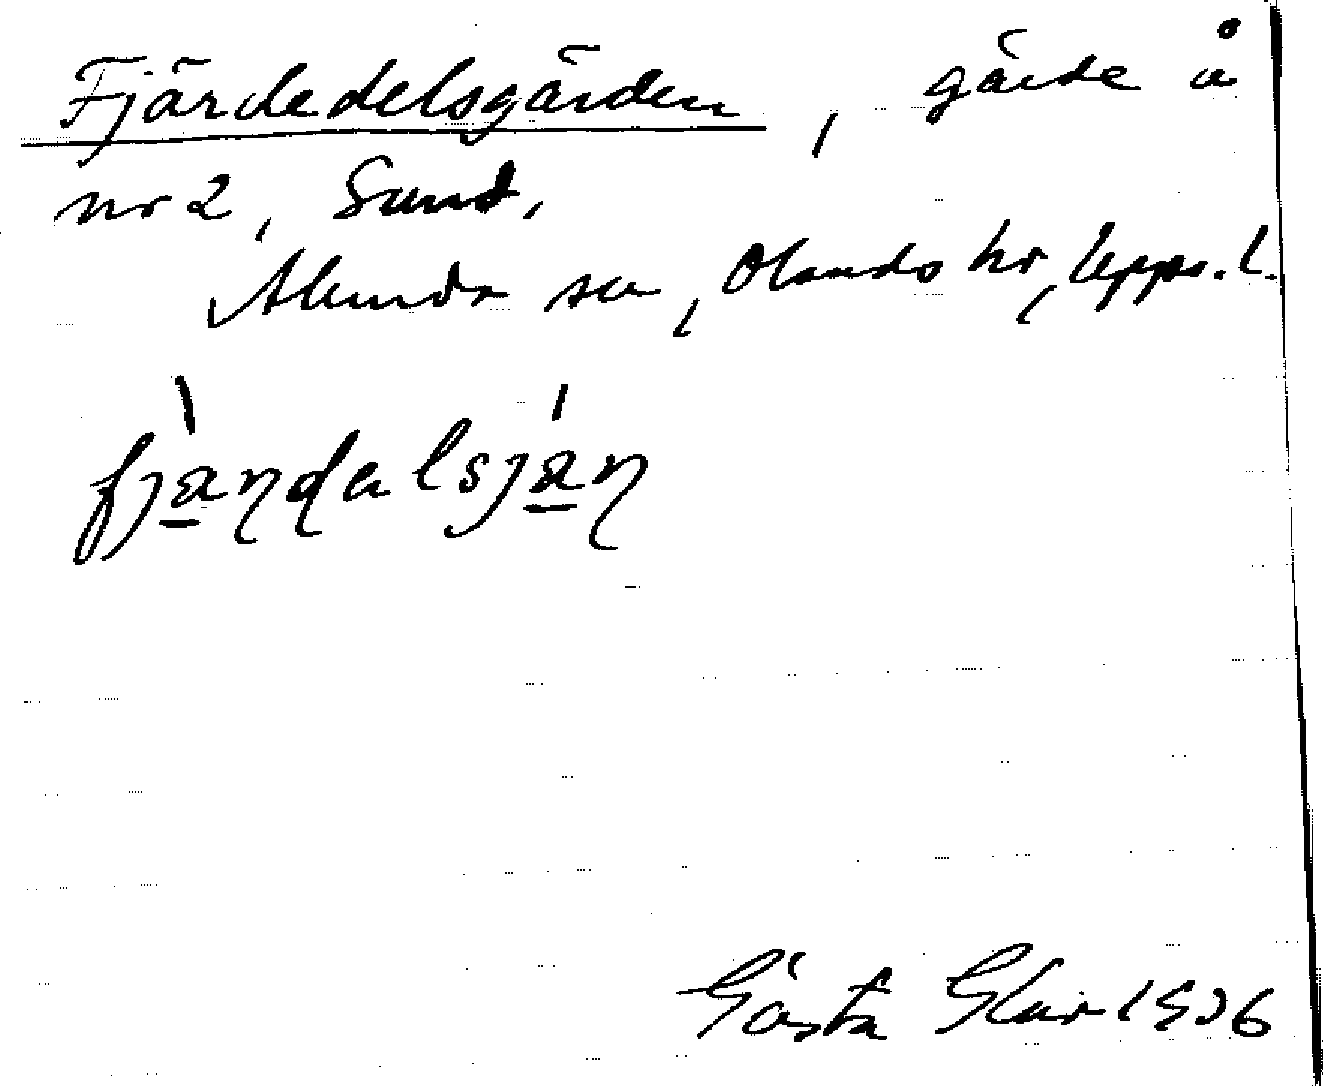 Fjärdedelsgärden, gärde å
nr 2, Sund,
Alunda sn, Olands hr, Upps. l.
fjäṇḍalsjäṇ
Gösta Ekar 1936